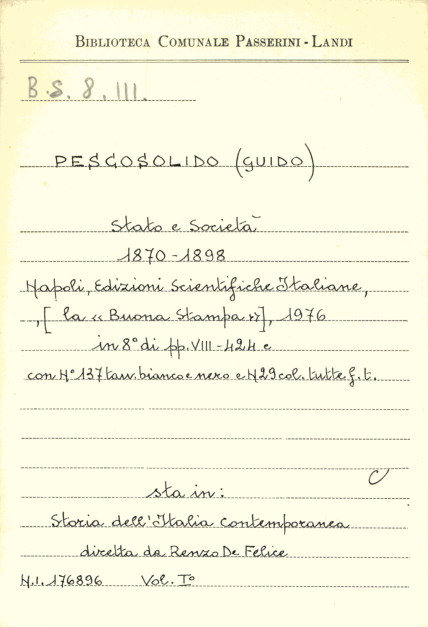 BIBLIOTECA COMUNALE PASSERINI - LANDI
B.S. 8. III.
PESCOSOLIDO (GUIDO)
Stato e Società
1870 - 1898
Napoli, Edizioni Scientifiche Italiane,
,[ la « Buona Stampa »], 1976
in 8° di pp. VIII - 424 e
con N° 137 tav. bianco e nero e N 29 col. tutte f. t.
C
sta in:
Storia dell'Italia Contemporanea
diretta da Renzo De Felice
N.I. 176896 Vol. I°